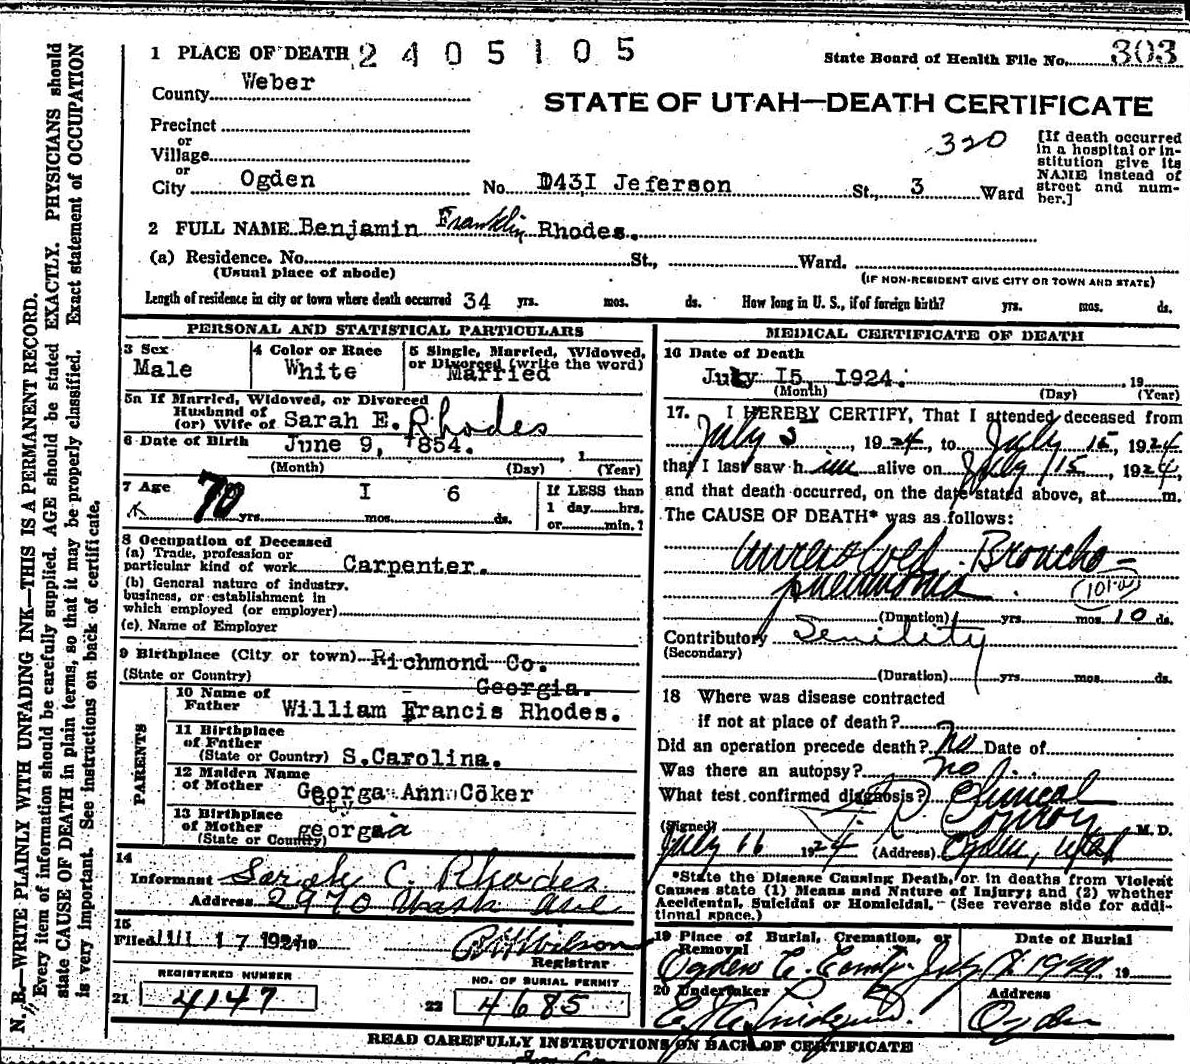 1 PLACE OF DEATH 2405105
State Board of Health File No. 303
County Weber
STATE OF UTAH—DEATH CERTIFICATE
Precinct
or
Village
or
City Ogden No. D43I Jeferson St., 3 Ward
320
[If death occurred in a hospital or institution give its NAME instead of street and number.]
2 FULL NAME Benjamin Franklin Rhodes.
(a) Residence. No. St., Ward.
(Usual place of abode) (IF NON-RESIDENT GIVE CITY OR TOWN AND STATE)
Length of residence in city or town where death occurred 34 yrs. mos. ds. How long in U. S., if of foreign birth? yrs. mos. ds.
PERSONAL AND STATISTICAL PARTICULARS
3 Sex Male
4 Color or Race White
5 Single, Married, Widowed, or Divorced (write the word) Married
5a If Married, Widowed, or Divorced
Husband of
(or) Wife of Sarah E. Rhodes
6 Date of Birth June 9, 1854. , 1
(Month) (Day) (Year)
7 Age 70 yrs. I mos. 6 ds.
If LESS than
1 day hrs.
or min.?
8 Occupation of Deceased
(a) Trade, profession or
particular kind of work Carpenter.
(b) General nature of industry.
business, or establishment in
which employed (or employer)
(c). Name of Employer
9 Birthplace (City or town) Richmond Co.
(State or Country) Georgia.
PARENTS
10 Name of Father William Francis Rhodes.
11 Birthplace of Father (State or Country) S.Carolina.
12 Maiden Name of Mother Georga Ann Coker
13 Birthplace of Mother (State or Country) georgia
14
Informant Sarah C. Rhodes
Address 2970 Wash Ave
15
Filed JUL 17 1924 19
Wilson
Registrar
REGISTERED NUMBER
21 4147
NO. OF BURIAL PERMIT
22 4685
MEDICAL CERTIFICATE OF DEATH
16 Date of Death
July I5, I924. , 19
(Month) (Day) (Year)
17. I HEREBY CERTIFY, That I attended deceased from
July 3, 1924, to July 15, 1924
that I last saw him alive on July 15, 1924,
and that death occurred, on the date stated above, at m.
The CAUSE OF DEATH* was as follows:
unresolved Broncho-
pneumonia (101-a)
(Duration) yrs. mos. 10 ds.
Contributory Senility
(Secondary)
(Duration) yrs. mos. ds.
18 Where was disease contracted
if not at place of death?
Did an operation precede death? No Date of
Was there an autopsy? no
What test confirmed diagnosis? Clinical
(Signed) Conroy M. D.
July 16 1924 (Address) Ogden, Utah
*State the Disease Causing Death, or in deaths from Violent
Causes state (1) Means and Nature of Injury; and (2) whether
Accidental, Suicidal or Homicidal. (See reverse side for addi-
tional space.)
19 Place of Burial, Cremation, or Removal
Ogden C. Cemty.
Date of Burial
July 1924 19
20 Undertaker
Address
Ogden
READ CAREFULLY INSTRUCTIONS ON BACK OF CERTIFICATE
N. B.—WRITE PLAINLY WITH UNFADING INK—THIS IS A PERMANENT RECORD.
Every item of information should be carefully supplied. AGE should be stated EXACTLY. PHYSICIANS should
state CAUSE OF DEATH in plain terms, so that it may be properly classified. Exact statement of OCCUPATION
is very important. See instructions on back of certificate.